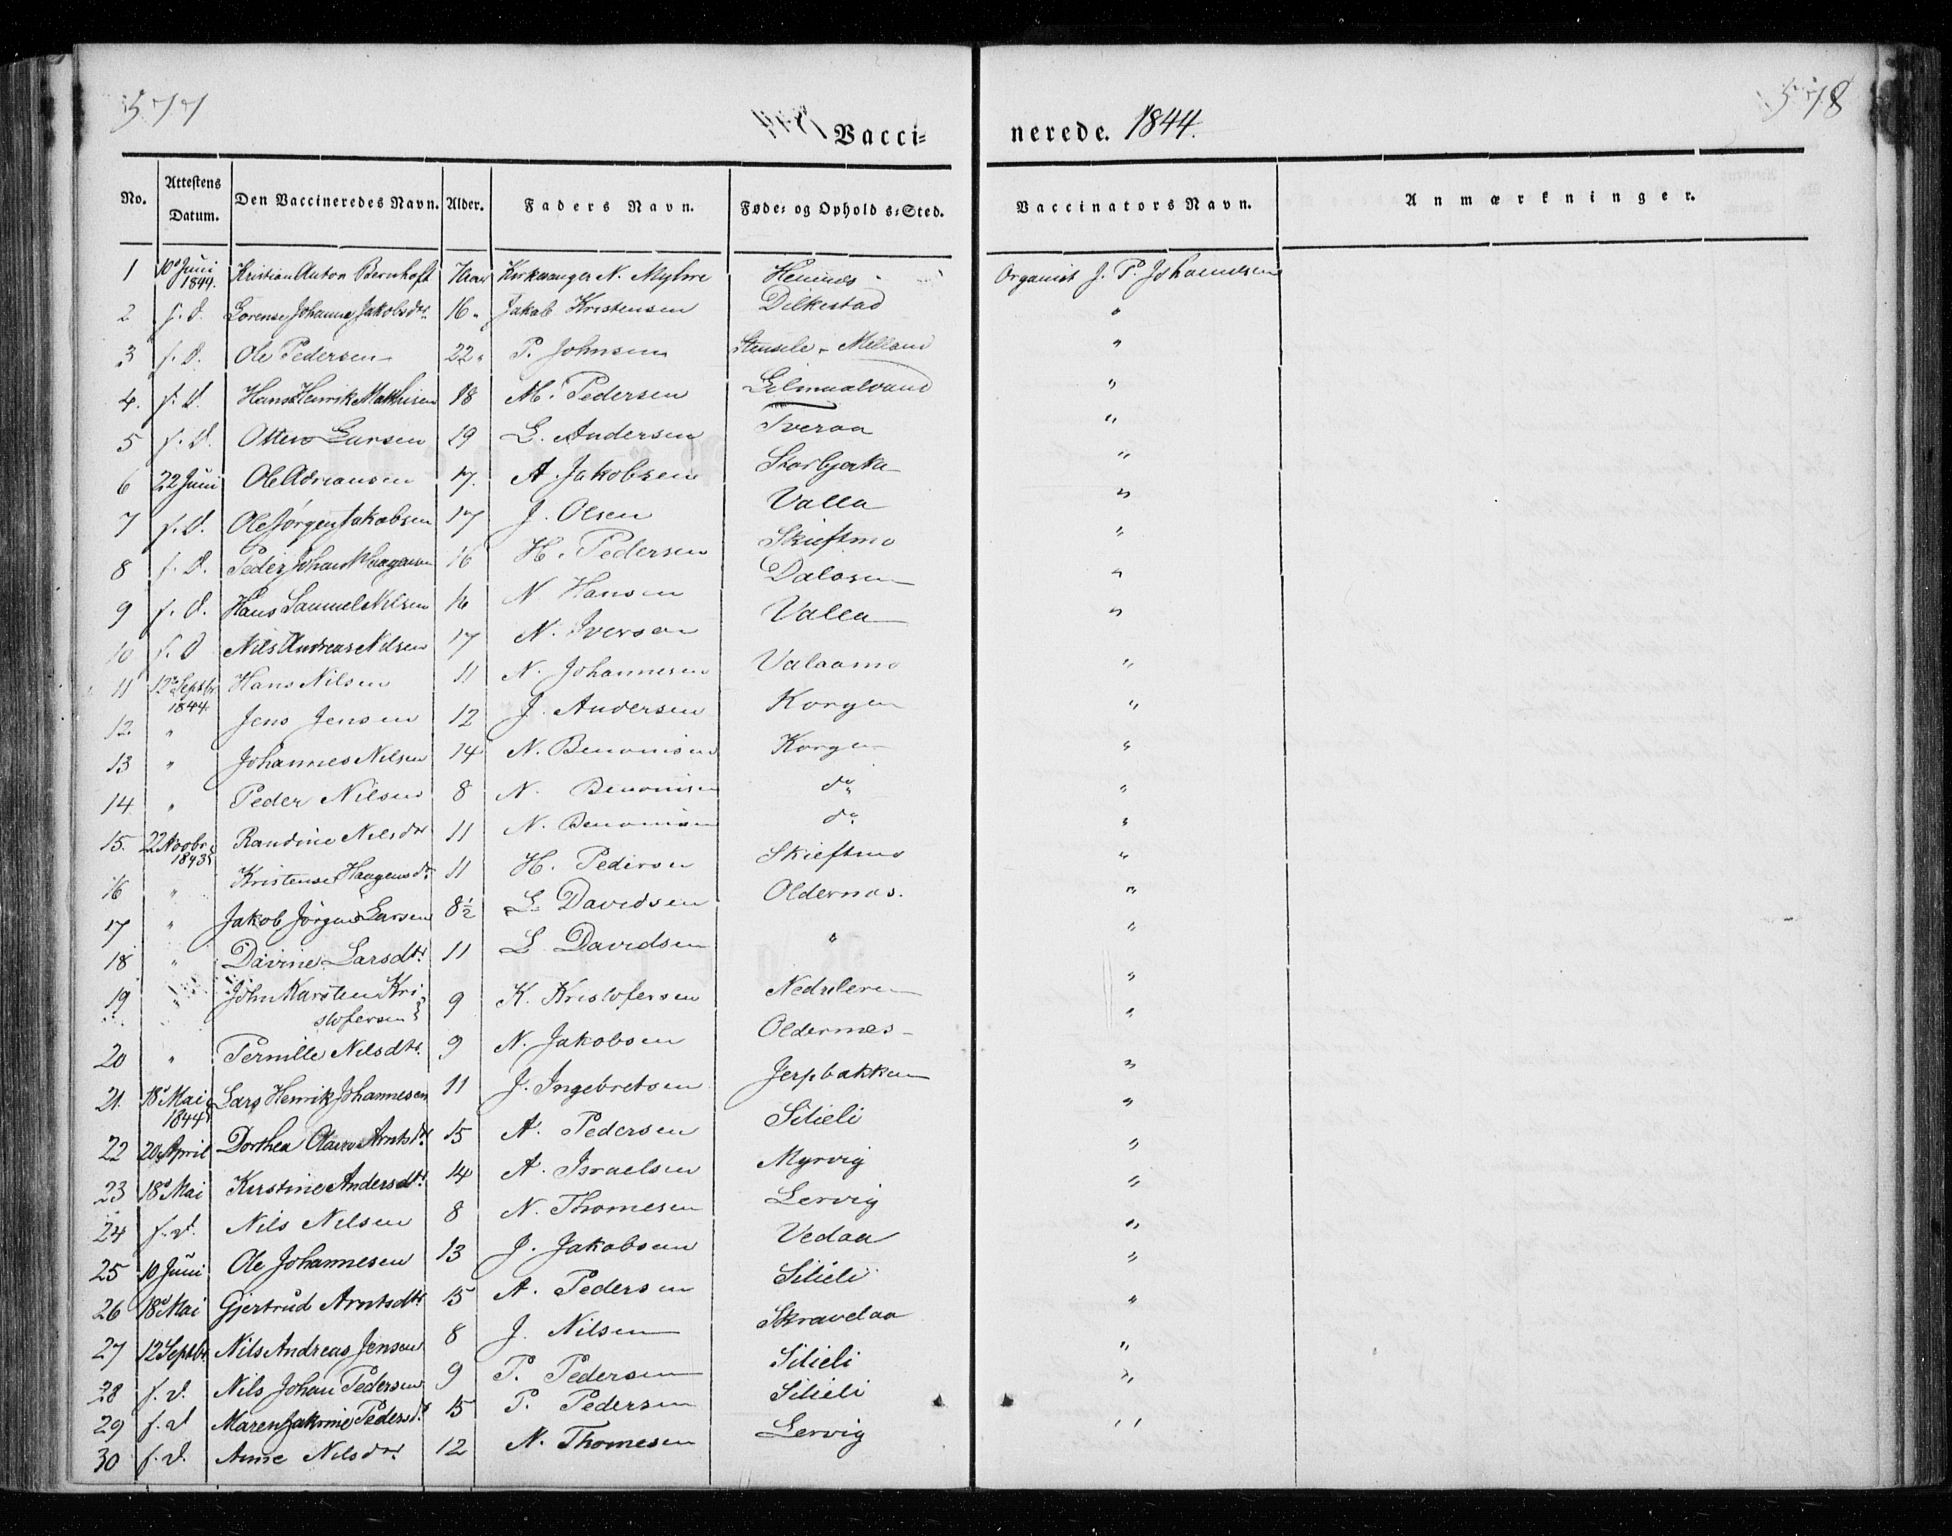 577
578
Vacci=
nerede. 1844.
No. Attestens Datum. Den Vaccineredes Navn. Alder. Faders Navn. Føde= og Ophold s=Sted. Vaccinators Navn. Anmærkninger.
1 10d Juni 1844. Kristian Anton Bernhoft Kirkesanger N. Myhre Hemnes Organist J. P. Johannesen
2 f. d. Lorense Johanna Jakobsdtr. 16 " Jakob Kristensen Dilkestad "
3 f. d. Ole Pedersen 22 " P. Johnsen Stensele - Melland "
4. f. d. Hans Henrik Mathisen 18 M. Pedersen "
5 f. d. Otten Larsen 19 L. Andersen Tveraa "
6 22 Juni Ole Adriansen 17. A. Jakobsen Storbjerka "
7 f. d. Ole Jørgen Jakobsen 17 J. Olsen Valla "
8 f. d. Peder Johan Haagensen 16 H. Pedersen Skieftmo "
9 f. d. Hans Samuel Nilsen 16 N Hansen Dalosen "
10 f. d Nils Andreas Nilsen 17 N. Iversen Valla "
11 12te Septbr 1844. Hans Nilsen 11 N. Johannesen Valaamo "
12. " Jens Jensen 12 J. Andersen Korgen "
13 " Johannes Nilsen 14 N. Benonisen Korgen "
14 " Peder Nilsen 8 N. Benonisen do "
15. 22 Novbr 1843 Randine Nilsdtr 11 N. Benonisen do "
16 " Kristense Haagensdr 11 H. Pedersen Skieftmo "
17 " Jakob Jørgen Larsen 8½ L. Davidsen Oldernes. "
18 " Davine Larsdtr. 11 L Davidsen " "
19 " John Karsten Kri-
stofersen 9 K. Kristofersen Nedreleren "
20 " Pernille Nilsdtr. 9 N. Jakobsen Oldernes "
21. 18d Mai 1844 Lars Henrik Johannesen 11 J. Ingebretsen Jerpbakken "
22 20 April Dorthea Olava Arntsdtr 15 A. Pedersen Silieli "
23 18d Mai Kirstine Andersdtr. 14 A. Israelsen Myrvig "
24 f. d. Nils Nilsen 8 N. Thomesen Lervig "
25 10 Juni Ole Johannesen 13 J. Jakobsen Vedaa "
26 18d Mai Gjertrud Arntsdtr 15 A. Pedersen Silieli "
27 12 Septbr. Nils Andreas Jensen 8 J. Nilsen Skravelaa "
28 f. d. Nils Johan Pedersen 9 P. Pedersen Silieli "
29 f. d Maren Jakrine Pedersdr 15 P. Pedersen Silieli "
30 f. d. Anne Nilsdtr. 12 N. Thomesen Lervig "